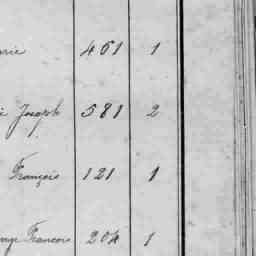 rie 461 1
Joseph 581 2
François 121 1
François 204 1